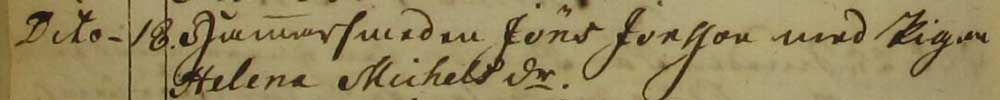 Dito - 18. Hammarsmeden Jöns Jonsson med Pigan
Helena Michels dr.